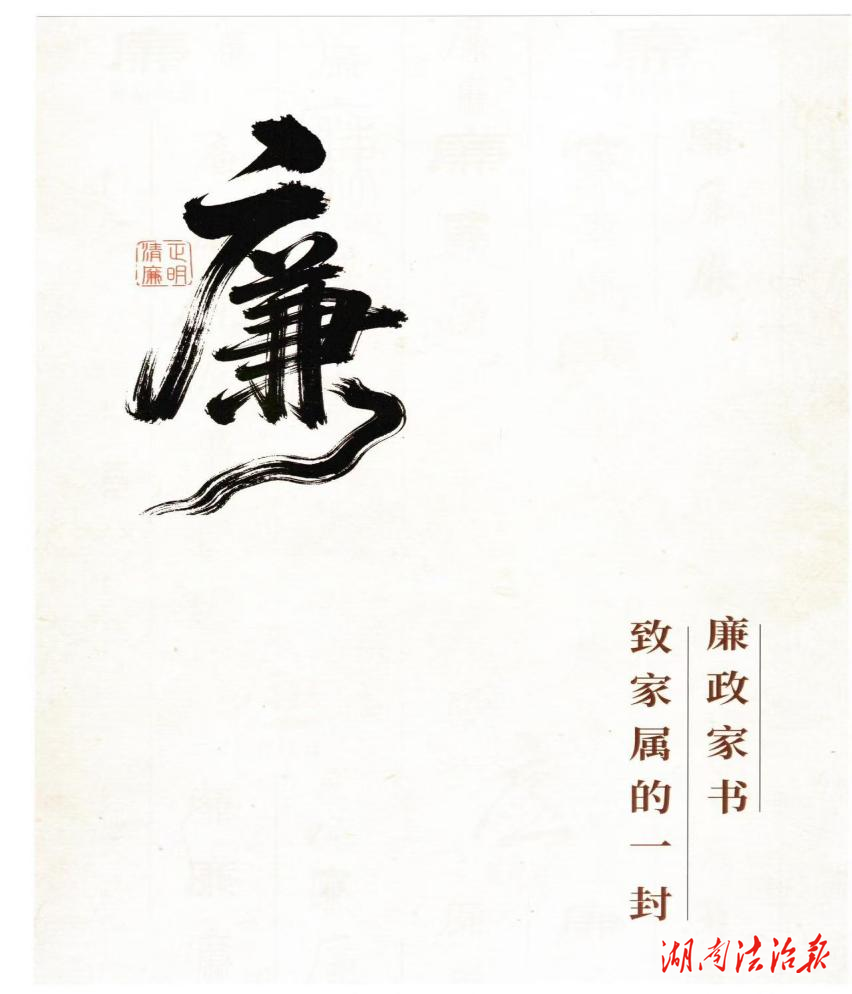 廉
正明
清廉
廉政家书
致家属的一封
湖南法治报